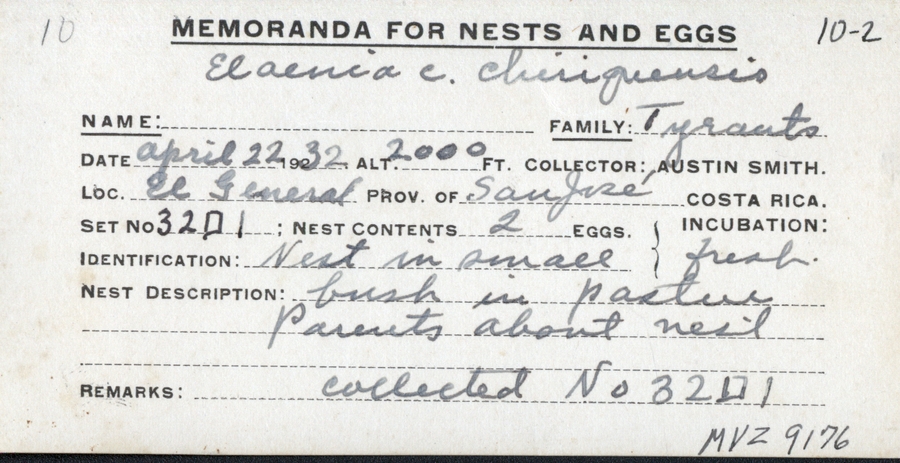 10 MEMORANDA FOR NESTS AND EGGS 10-2
Elaenia c. chiriquensis
NAME: FAMILY: Tyrants
DATE April 22 1932 ALT. 2000 FT. COLLECTOR: AUSTIN SMITH.
LOC. El General PROV. OF San José COSTA RICA.
SET No 32D1 ; NEST CONTENTS 2 EGGS. INCUBATION:
IDENTIFICATION: Nest in small fresh.
NEST DESCRIPTION: bush in pasture
Parents about nest
REMARKS: collected No 32D1
MVZ 9176